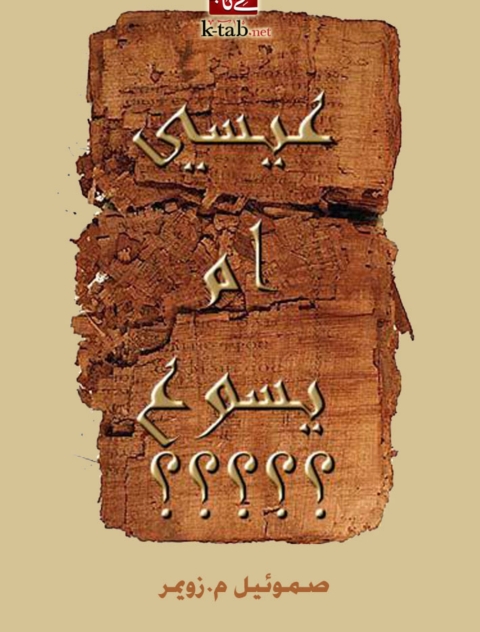 k-tab.net
عيسي
ام
يسوع
؟؟؟؟؟
صموئيل م. زويمر